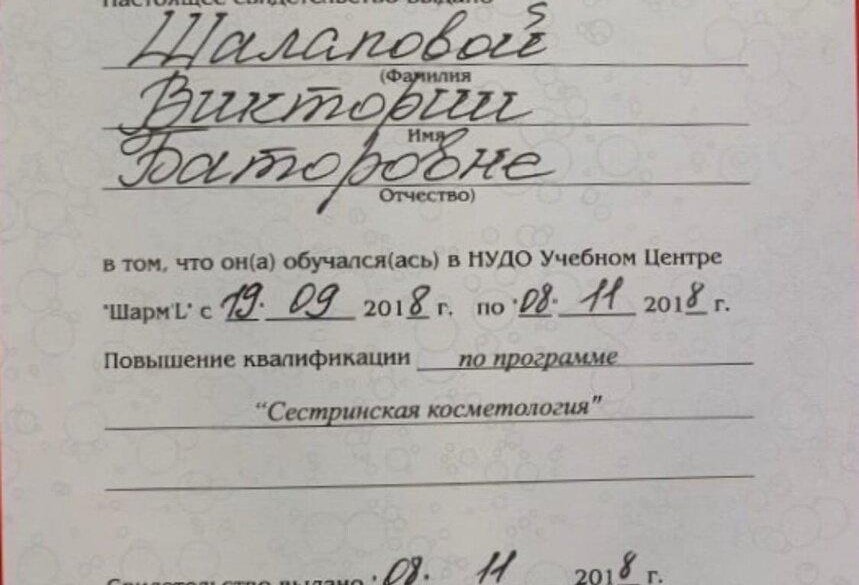 Настоящее свидетельство выдано
Шалаповой
(Фамилия
Виктории
Имя
Баторовне
Отчество)
в том, что он(а) обучался(ась) в НУДО Учебном Центре
"Шарм'L" с 19. 09 2018 г. по "08" 11 2018 г.
Повышение квалификации по программе
“Сестринская косметология”
Свидетельство выдано "08. 11 2018 г.